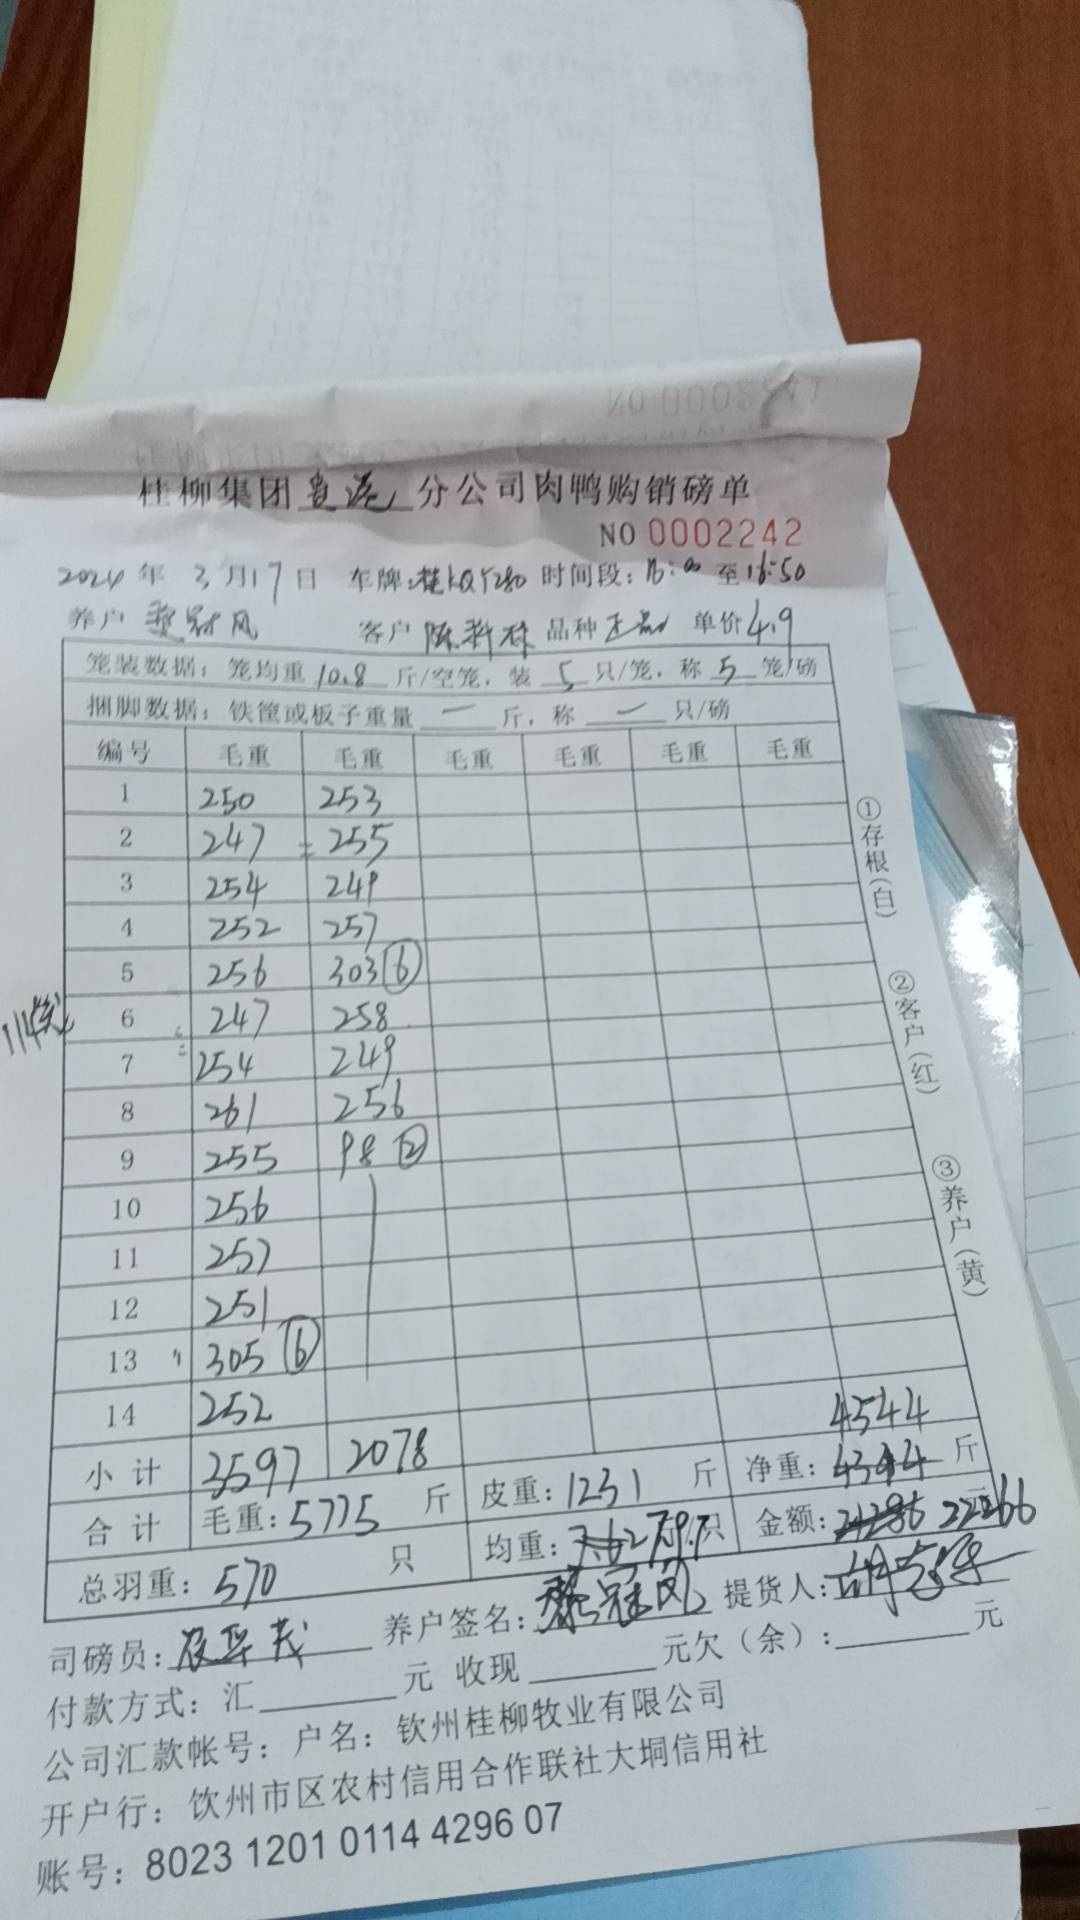 NO 0002241
桂柳集团贵港分公司肉鸭购销磅单
NO 0002242
2024年 3月17日 车牌:桂KQY280 时间段:16:00至16:50
养户 冠风 客户 陈 品种 正品 单价4.9
笼装数据:笼均重10.8斤/空笼,装5只/笼,称5笼/磅
捆脚数据:铁筐或板子重量一斤,称一只/磅
编号 毛重 毛重 毛重 毛重 毛重 毛重
1 250 253
2 247 255
3 254 249
4 252 257
5 256 303⑥
6 247 258
7 254 249
8 261 256
9 255 98②
10 256
11 257
12 251
13 305⑥
14 252
114笼
小计 3597 2078
4544
合计 毛重:5775斤 皮重:1231斤 净重:4344斤
总羽重:570只 均重:7.97只 金额:21286 22266元
司磅员: 养户签名:冠风 提货人:
付款方式:汇 元 收现 元欠(余): 元
公司汇款帐号:户名:钦州桂柳牧业有限公司
开户行:钦州市区农村信用合作联社大垌信用社
账号:8023 1201 0114 4296 07
①存根(白)
②客户(红)
③养户(黄)